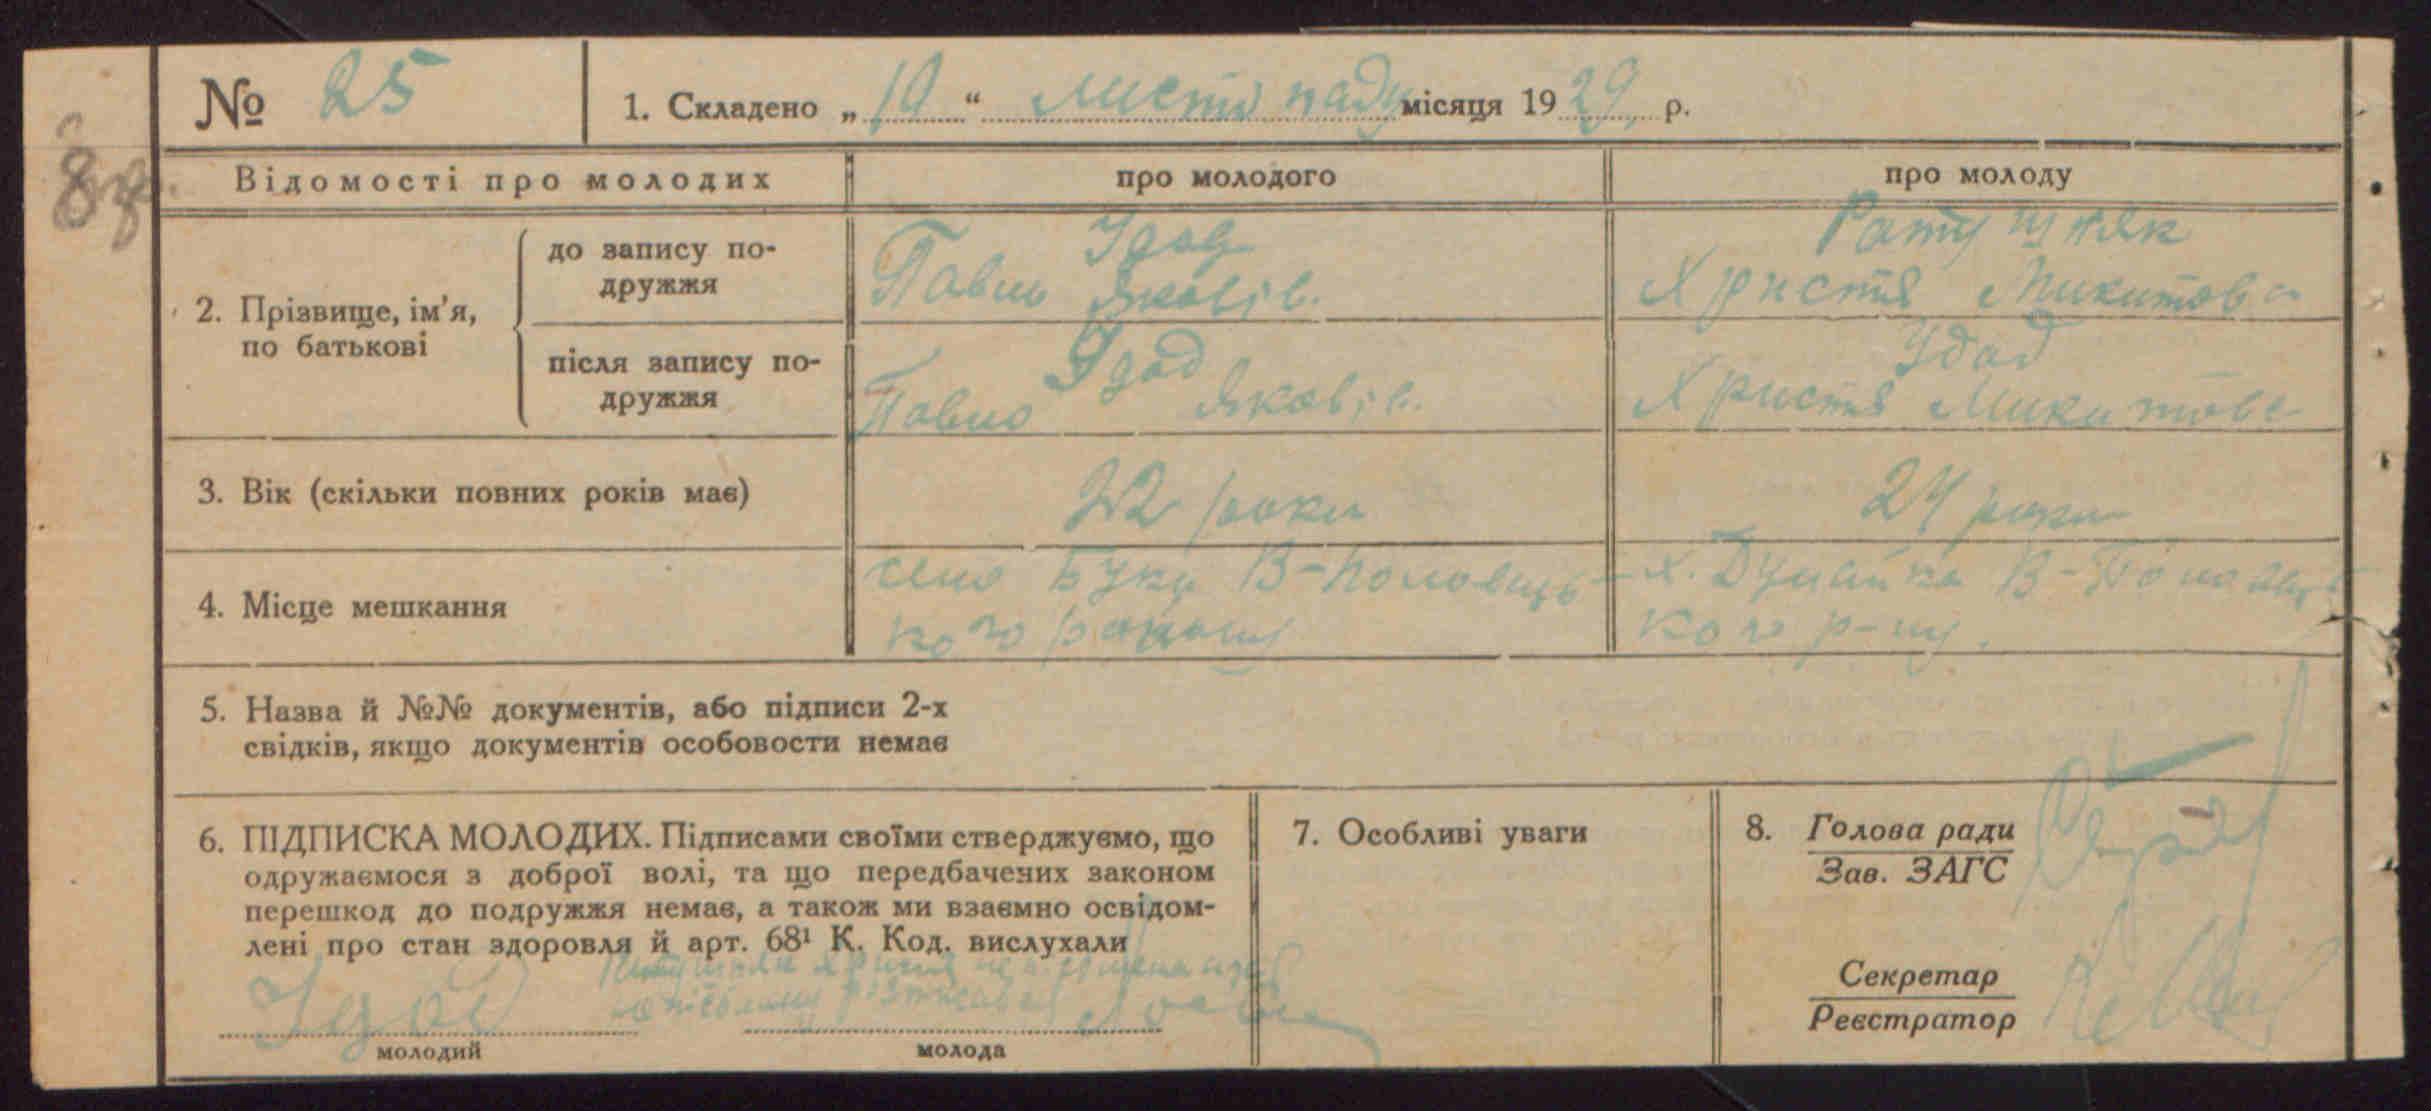 № 25
1. Складено „ 10 “ листопаду місяця 1929 р.
Відомості про молодих
про молодого
про молоду
2. Прізвище, ім'я,
по батькові
до запису по-
дружжя
Удод
Павло Яковів.
Ратушняк
Христя Микитова
після запису по-
дружжя
Удод
Павло Яковів.
Удод
Христя Микитова
3. Вік (скільки повних років має)
22 роки
24 роки
4. Місце мешкання
село Буки В-Половець-
кого району
х. Дунайка В-Половець
кого р-ну.
5. Назва й №№ документів, або підписи 2-х
свідків, якщо документів особовости немає
6. ПІДПИСКА МОЛОДИХ. Підписами своїми стверджуємо, що
одружаємося з доброї волі, та що передбачених законом
перешкод до подружжя немає, а також ми взаємно освідом-
лені про стан здоровля й арт. 68¹ К. Код. вислухали
Удод
Ратушняк Христя
молодий
молода
7. Особливі уваги
8. Голова ради
Зав. ЗАГС
Секретар
Реєстратор